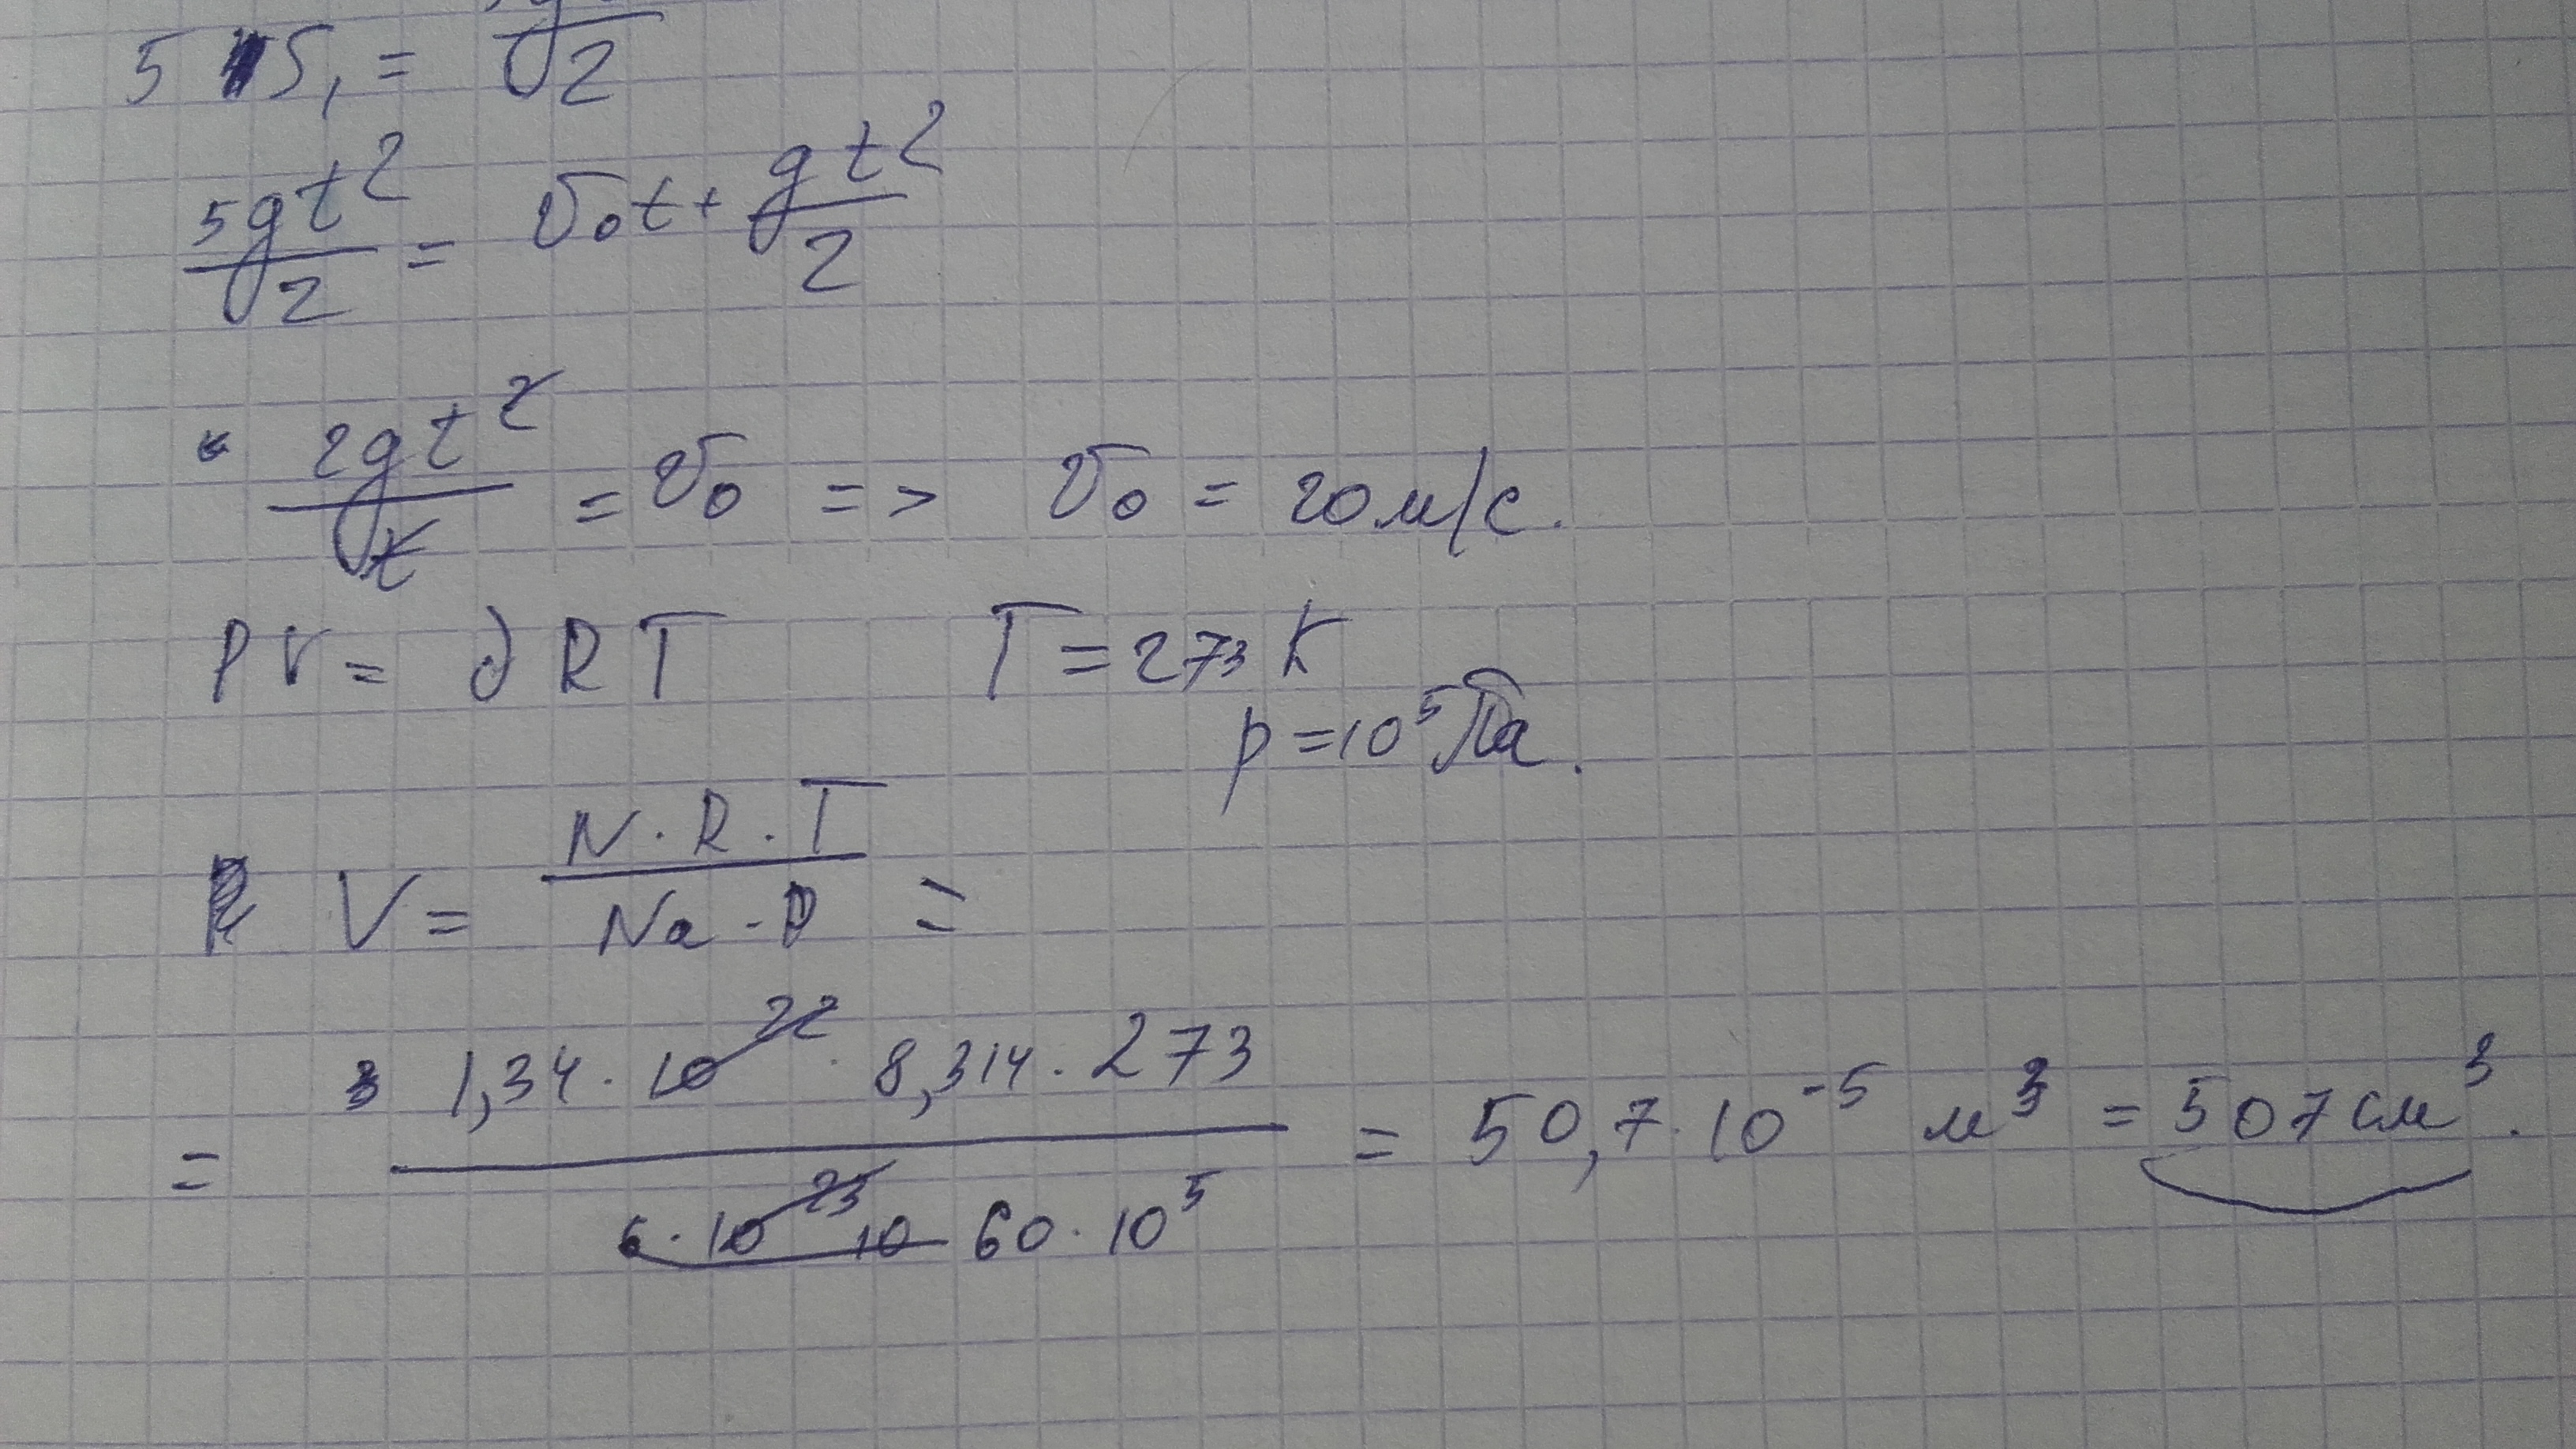 5 S₁ = gt²/2
5gt²/2 = υ₀t + gt²/2
2gt²/t = υ₀ => υ₀ = 20 м/с.
PV = ∂RT T = 273 K
p = 10⁵ Па.
V = N·R·T/Na·P =
= 1,34·10²²·8,314·273/6·10²³ 10 60·10⁵ = 50,7·10⁻⁵ м³ = 507 см³.